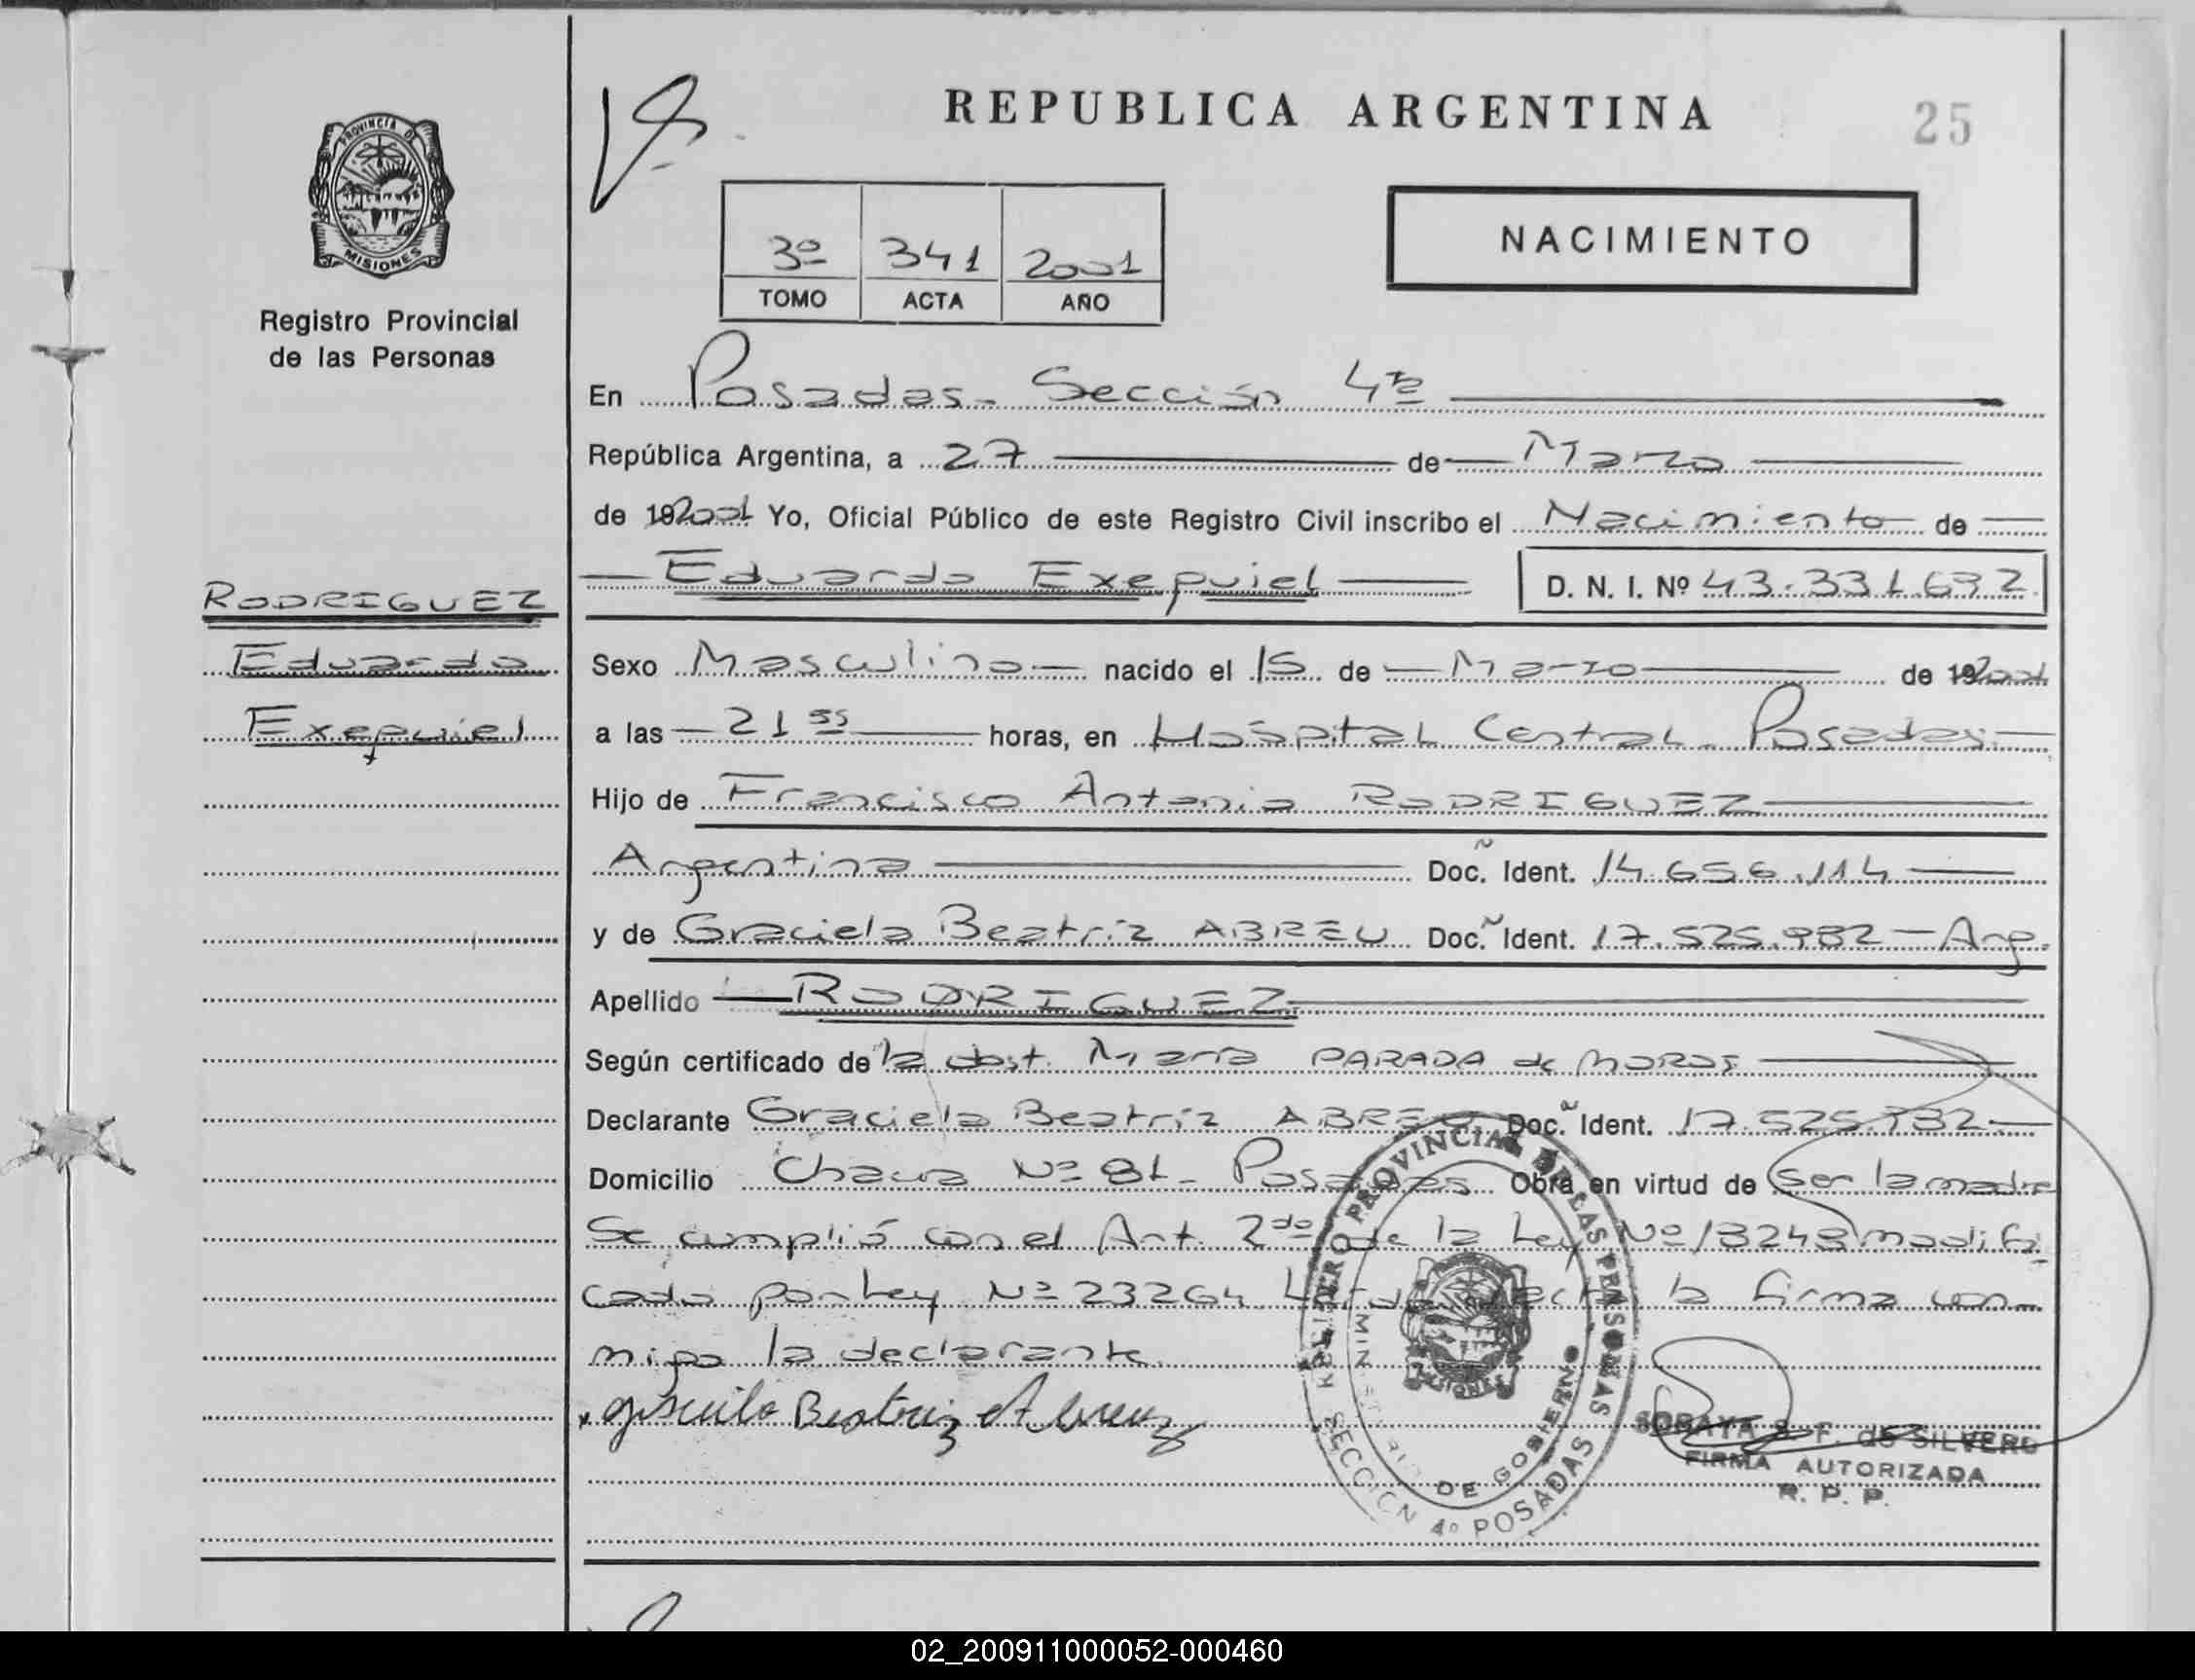 REPUBLICA ARGENTINA
25
PROVINCIA DE
MISIONES
Registro Provincial
de las Personas
NACIMIENTO
3º 341 2001
TOMO ACTA AÑO
En Posadas - Sección 4ta
República Argentina, a 27 de Marzo
de 192001 Yo, Oficial Público de este Registro Civil inscribo el Nacimiento de
Eduardo Exequiel D. N. I. Nº 43.331.632
RODRIGUEZ
Eduardo
Exequiel
Sexo Masculino nacido el 15 de Marzo de 192001
a las 21 55 horas, en Hospital Central - Posadas
Hijo de Francisco Antonio RODRIGUEZ
Argentina Doc. Ident. 14.656.114
y de Graciela Beatriz ABREU Doc. Ident. 17.525.982 - Arg.
Apellido RODRIGUEZ
Según certificado de la obst. María PARADA de MOROS
Declarante Graciela Beatriz ABREU Doc. Ident. 17.525.982
Domicilio Nº 81 - Posadas Obra en virtud de ser la madre
Se cumplió con el Art. 2do de la Ley Nº 13248 modifi
cado por Ley Nº 23264. la firma con
migo la declarante.
Beatriz Abreu
REGISTRO PROVINCIAL DE LAS PERSONAS
MINISTERIO DE GOBIERNO
MISIONES
SECCION 4º POSADAS
SORAYA S. F. de SILVERO
FIRMA AUTORIZADA
R. P. P.
02_200911000052-000460